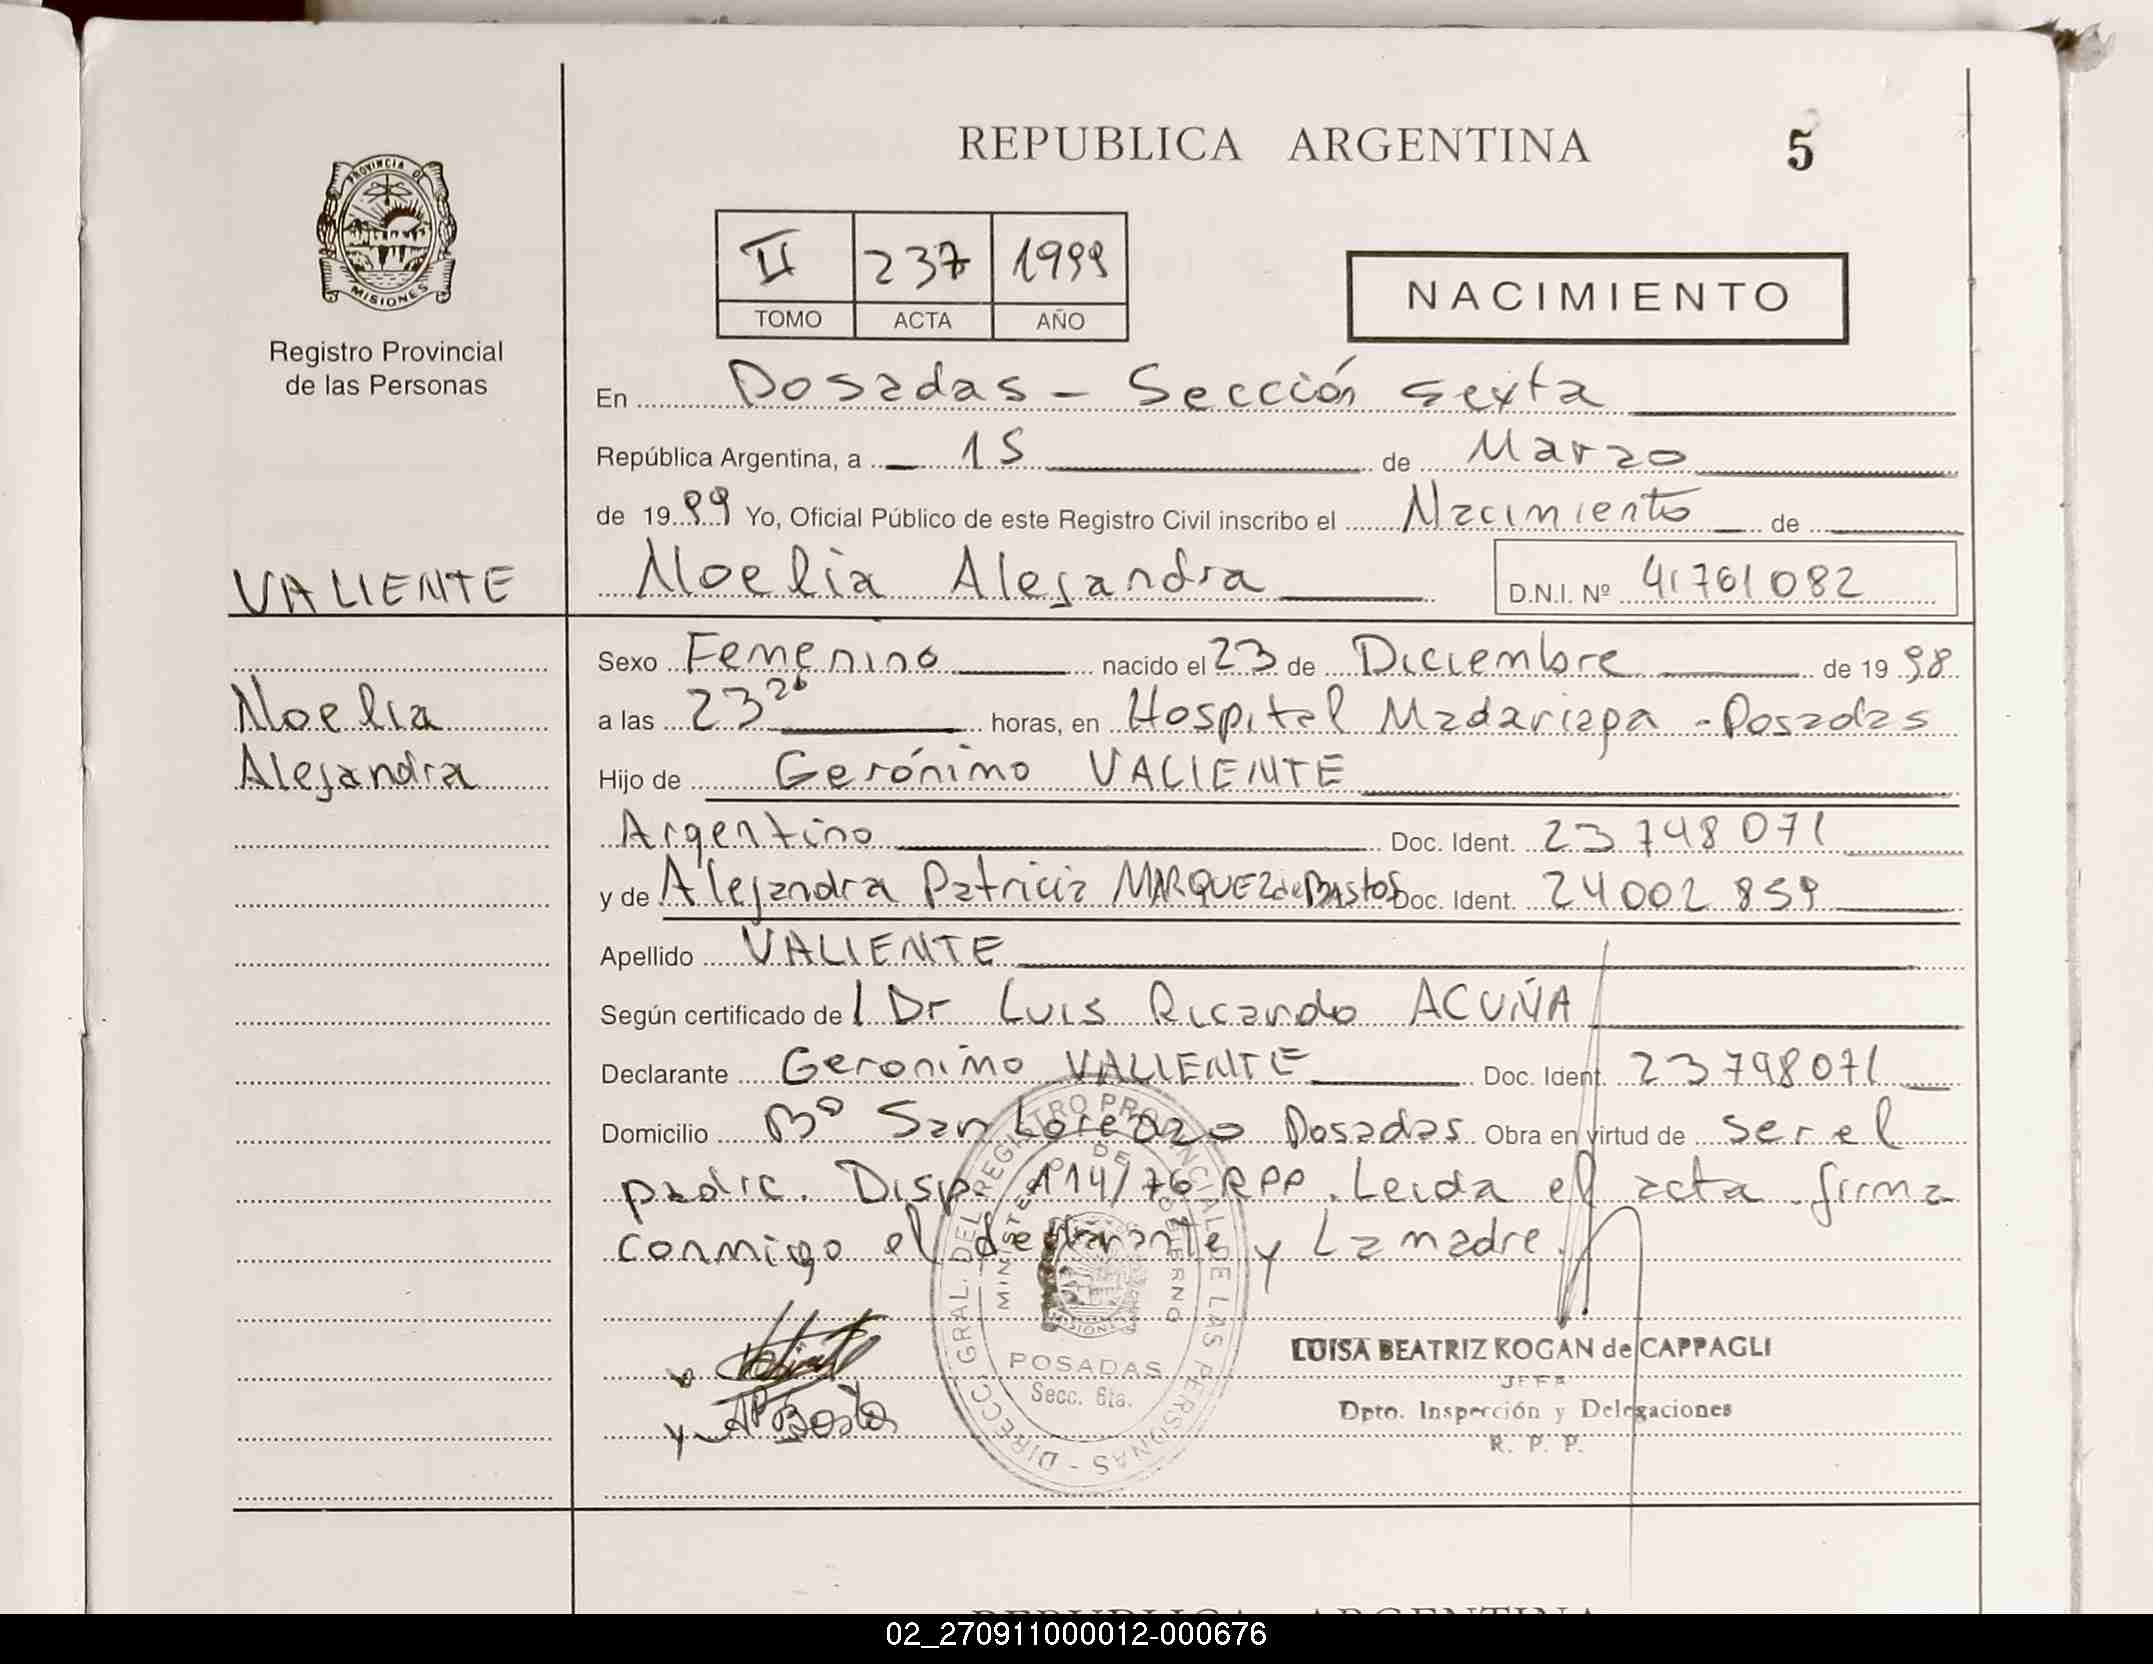 REPUBLICA ARGENTINA 5
PROVINCIA DE
MISIONES
Registro Provincial
de las Personas
II 237 1999
TOMO ACTA AÑO
NACIMIENTO
En Posadas - Sección sexta
República Argentina, a 15 de Marzo
de 1999 Yo, Oficial Público de este Registro Civil inscribo el Nacimiento de
VALIENTE Noelia Alejandra D.N.I. Nº 41761082
Sexo Femenino nacido el 23 de Diciembre de 1998
Noelia a las 23 horas, en Hospital Madariaga - Posadas
Alejandra Hijo de Gerónimo VALIENTE
Argentino Doc. Ident. 23 798 071
y de Alejandra Patricia MARQUEZ de BASTOS Doc. Ident. 24 002 859
Apellido VALIENTE
Según certificado de l Dr Luis Ricardo ACUÑA
Declarante Geronimo VALIENTE Doc. Ident. 23798071
Domicilio Bº San Lorenzo Posadas Obra en virtud de ser el
padre. Disp. 114/76 RPP. Leida el acta firma
conmigo el declarante y La madre.
DIRECC. GRAL. DEL REGISTRO PROVINCIAL DE LAS PERSONAS -
MINISTERIO DE GOBIERNO
MISIONES
POSADAS
Secc. 6ta.
LUISA BEATRIZ KOGAN de CAPPAGLI
JEFA
Dpto. Inspección y Delegaciones
R. P. P.
REPUBLICA ARGENTINA
02_270911000012-000676